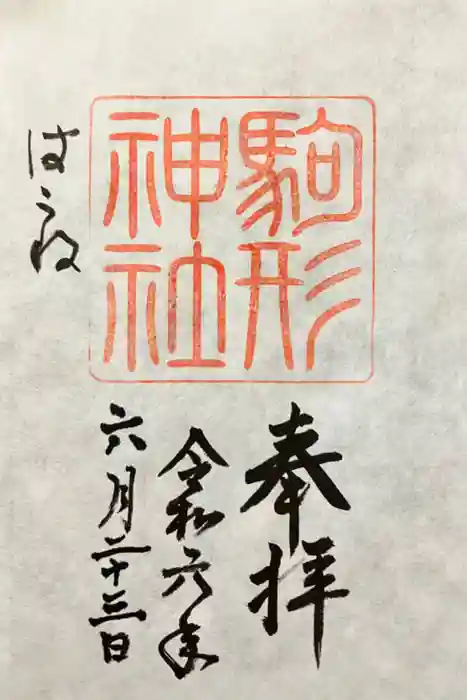 駒形
神社
はこね
奉拝
令和六年
六月二十三日